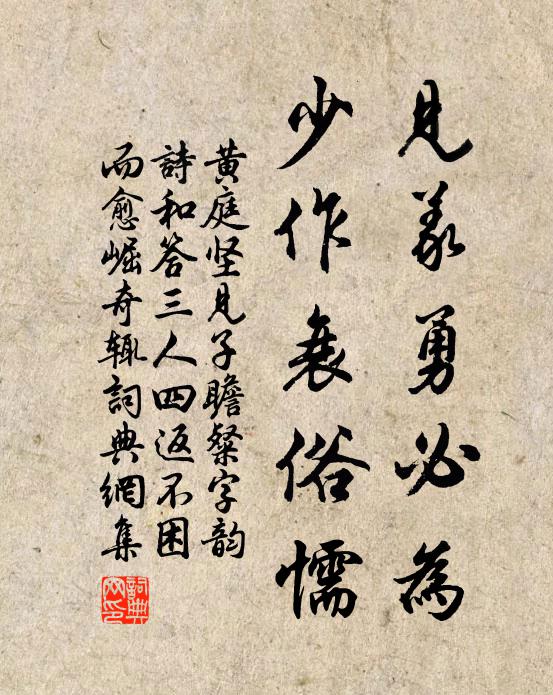 見義勇必為
少作衰俗懦
黄庭坚見子瞻粲字韵
詩和答三人四返不困
而愈崛奇辄詞典網集
詞典网印